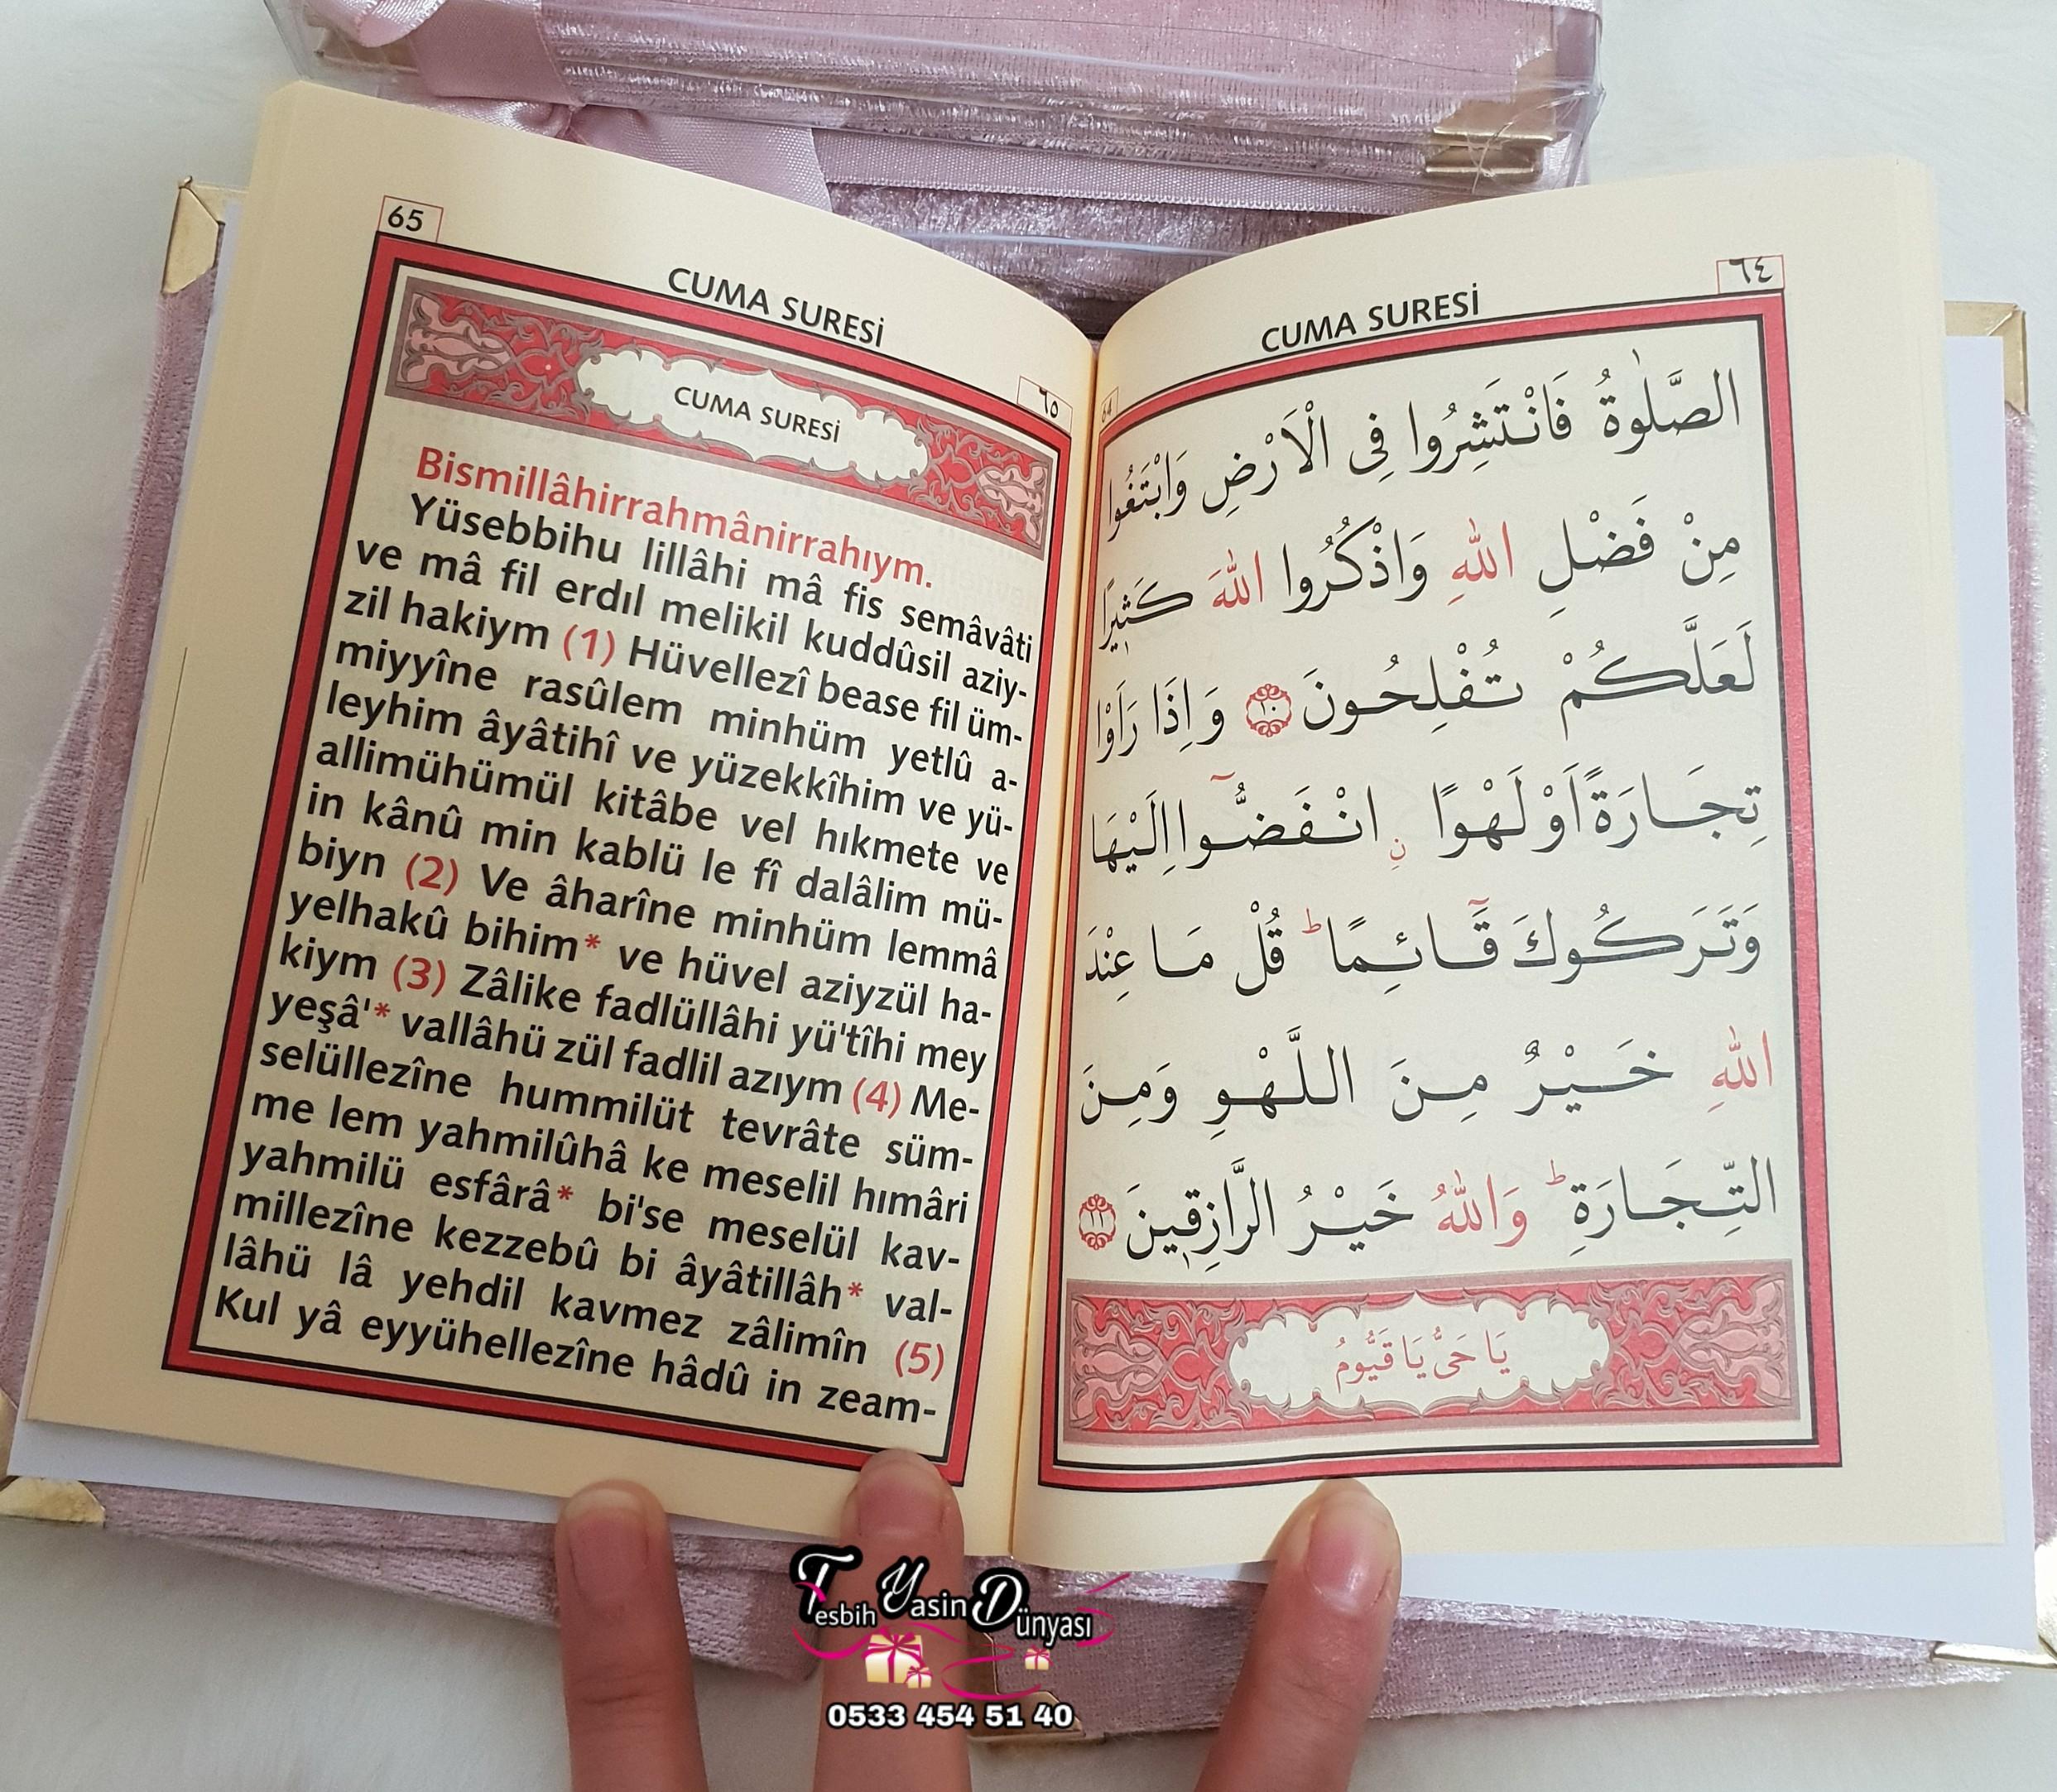 65
CUMA SURESİ
٦٥
CUMA SURESİ
Bismillâhirrahmânirrahıym.
Yüsebbihu lillâhi mâ fis semâvâti
ve mâ fil erdıl melikil kuddûsil aziy-
zil hakiym (1) Hüvellezî bease fil üm-
miyyîne rasûlem minhüm yetlû a-
leyhim âyâtihî ve yüzekkîhim ve yü-
allimühümül kitâbe vel hıkmete ve
in kânû min kablü le fî dalâlim mü-
biyn (2) Ve âharîne minhüm lemmâ
yelhakû bihim* ve hüvel aziyzül ha-
kiym (3) Zâlike fadlüllâhi yü'tîhi mey
yeşâ'* vallâhü zül fadlil azıym (4) Me-
selüllezîne hummilüt tevrâte süm-
me lem yahmilûhâ ke meselil hımâri
yahmilü esfârâ* bi'se meselül kav-
millezîne kezzebû bi âyâtillâh* val-
lâhü lâ yehdil kavmez zâlimîn (5)
Kul yâ eyyühellezîne hâdû in zeam-
٦٤
CUMA SURESİ
64
الصَّلٰوةُ فَانْتَشِرُوا فِى الْاَرْضِ وَابْتَغُوا
مِنْ فَضْلِ اللّٰهِ وَاذْكُرُوا اللّٰهَ كَثٖيرًا
لَعَلَّكُمْ تُفْلِحُونَ ١٠ وَاِذَا رَاَوْا
تِجَارَةً اَوْ لَهْوًا نِ انْفَضُّوٓا اِلَيْهَا
وَتَرَكُوكَ قَٓائِمًا ط قُلْ مَا عِنْدَ
اللّٰهِ خَيْرٌ مِنَ اللَّهْوِ وَمِنَ
التِّجَارَةِ ط وَاللّٰهُ خَيْرُ الرَّازِقٖينَ ١١
يَا حَىُّ يَا قَيُّومُ
Tesbih Yasin Dünyası
0533 454 51 40